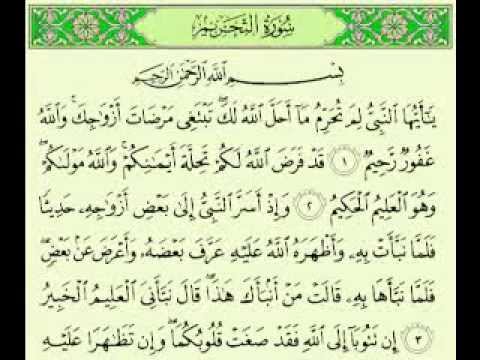 سُورَةُ التَّحْرِيمِ
بِسْمِ ٱللَّهِ ٱلرَّحْمَٰنِ ٱلرَّحِيمِ
يَٰٓأَيُّهَا ٱلنَّبِىُّ لِمَ تُحَرِّمُ مَآ أَحَلَّ ٱللَّهُ لَكَ ۖ تَبْتَغِى مَرْضَاتَ أَزْوَٰجِكَ ۚ وَٱللَّهُ
غَفُورٌ رَّحِيمٌ ١ قَدْ فَرَضَ ٱللَّهُ لَكُمْ تَحِلَّةَ أَيْمَٰنِكُمْ ۚ وَٱللَّهُ مَوْلَىٰكُمْ ۖ
وَهُوَ ٱلْعَلِيمُ ٱلْحَكِيمُ ٢ وَإِذْ أَسَرَّ ٱلنَّبِىُّ إِلَىٰ بَعْضِ أَزْوَٰجِهِۦ حَدِيثًا
فَلَمَّا نَبَّأَتْ بِهِۦ وَأَظْهَرَهُ ٱللَّهُ عَلَيْهِ عَرَّفَ بَعْضَهُۥ وَأَعْرَضَ عَنۢ بَعْضٍ ۖ
فَلَمَّا نَبَّأَهَا بِهِۦ قَالَتْ مَنْ أَنۢبَأَكَ هَٰذَا ۖ قَالَ نَبَّأَنِىَ ٱلْعَلِيمُ ٱلْخَبِيرُ
٣ إِن تَتُوبَآ إِلَى ٱللَّهِ فَقَدْ صَغَتْ قُلُوبُكُمَا ۖ وَإِن تَظَٰهَرَا عَلَيْهِ